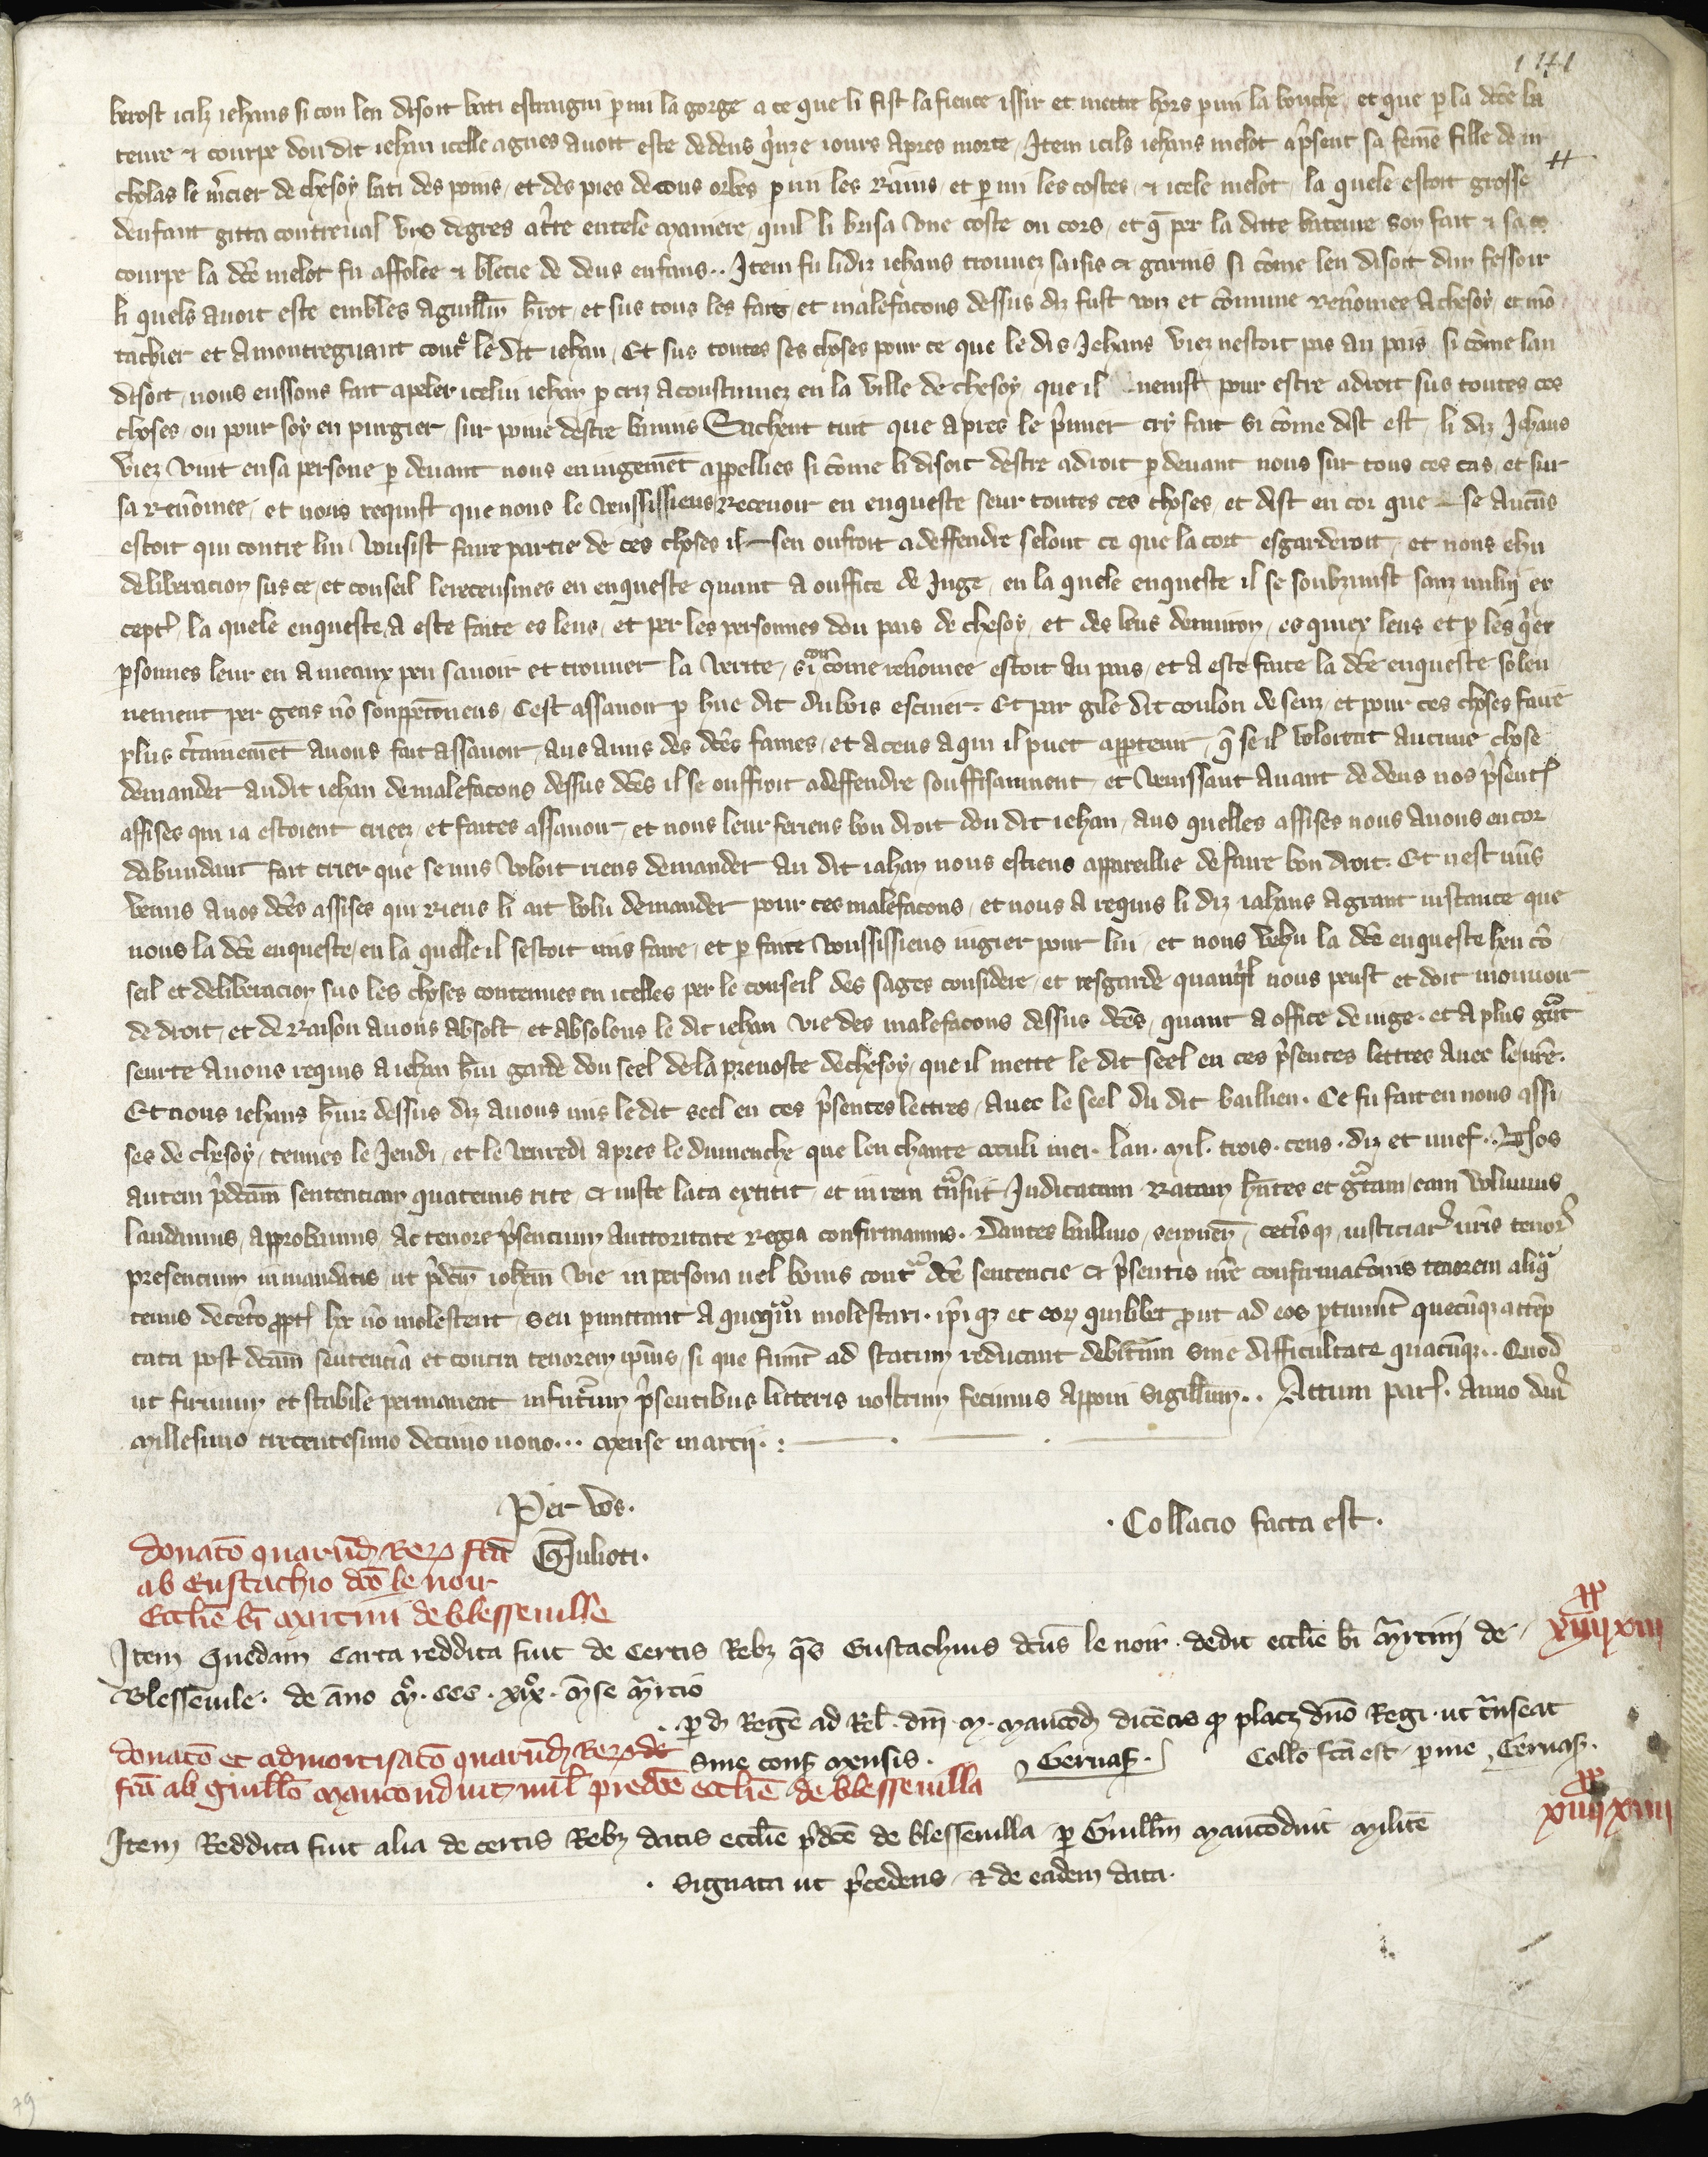 141
berost icilz iehans si con len disoit bati estraigni p mi la gorge a ce que li fist la fience issir et mettre hors p mi la bouche, et que p la dce ba
teure & courpe dou dit iehan icelle agnes avoit este dedens q̓nze iours apres morte, Item icils iehans melot apsent sa feme fille de ni
cholas le mcier de chesoy bati des poins, et des pies de cous orbes p mi les rains, et p mi les costes, & icele melot, la quele estoit grosse
denfant gitta contreval les degres a tre en tele maniere, quil li brisa une coste ou cors, et q̄ per la ditte bateure son fait & sa co
courpe la dce melot fu affolee & blecie de deus enfans.. Item fu li diz iehans trouvez saisis et garnis si come len disoit dun fessoir
li quels avoit este embles a guillm brot, et sus tous les fais, et malefacons dessus diz fust voiz et comune renomee a chesoy, et mo
tachier et a montreguart contre le dit iehan, Et sus toutes ses choses pour ce que le dis Jehans viez nestoit pas au pais, si come lan
disoit, nous eussons fait apeler icelui iehan p criz acoustumez en la ville de chesoy, que il venist pour estre a droit sus toutes ces
choses, ou pour soy en purgier, sur poine destre bannis Sachent tuit que apres le pmier cry fait si come dist est, li diz Jehans
viez vint en sa persone p devant nous en iugement appellies si come li disoit destre a droit p devant nous sur tous ces cas, et sur
sa renomee, et nous requist que nous le vousissiens recevoir en enqueste seur toutes ces choses, et dist en cor que se aucuns
estoit qui contre lui vousist faire partie de ces choses il sen ouffroit a deffendre selonc ce que la cort esgarderoit, et nous ehu
deliberacion sus ce, et conseil le receusmes en enqueste quant a ouffice de Juge, en la quele enqueste il se soubzmist sanz nully ex
cept, la quele enqueste a este faite es leus, et per les personnes dou pais de chesoy, et des leus denviron, es quiex leus et p les q̓ex
psonnes leur en a mieux peu savoir et trouver la verite, si con come renomee estoit au pais, et a este faite la dce enqueste solen
nement per gens no souppeconeus, Cest assavoir p hue dit du bois escuier. Et par gile dit coulon de senz, et pour ces choses faire
plus ctainemet avons fait assavoir, aus amis des dces fames, et a ceus a qui il puet apptenir, q̄ se il voloient aucune chose
demander au dit iehan de malefacons dessus dces il se ouffroit a deffendre souffisamment, et venissant avant dedens nos psent
assises qui ia estoient criees, et faites assavoir, et nous leur feriens bon droit dou dit iehan, aus quelles assises nous avons encor
dabundant fait crier que se nus voloit riens demander au dit iahan nous estiens appareillie de faire bon droit. Et nest nuls
venus a nos dces assises qui riens li ait volu demander pour ces malefacons, et nous a requis li diz iahans a grant instance que
nous la dce enqueste, en la quelle il sestoit mis faire, et p faite voussissiens iugier pour lui, et nous vehu la dce enqueste heu co
seil et deliberacion sus les choses contenues en icelles per le conseil des sages considere, et resgarde quanq̓l nous peust et doit mouvoir
de droit, et de raison avons absolt, et absolons le dit iehan vie des malefacons dessus dces, quant a office de iuge. et a plus gͣnt
seurte avons requis a iehan bri garde dou seel de la prevoste de chesoy, que il mette le dit seel en ces psentes lettres avec le nre.
Et nous iehans bruiz dessus diz avons mis le dit seel en ces psentes lettres, avec le seel du dit baillieu. Ce fu fait en nous assi
ses de chesoy, tenues le Jeudi, et le venredi apres le dimenche que len chante oculi mei. lan. mil. trois. cens. diz et nuef.. Nos
autem pdcam sentenciam quatenus rite & iuste lata extitit, et in rem tͣnsiit Judicatam ratam hntes et gͣtam, eam volumus
laudamus, approbamus, ac tenore psencium auttoritate regia confirmamus. Dantes ballivo, senonen, cetisq, iusticiar nris tenor
presencium in mandatis, ut pdcm iohem vie in persona vel bonis contͣ dce sentencie & psentis nre confirmacois tenorem aliqͣ
tenus de ceto ppt hc no molestent, seu permittant a quoqͣm molestari. ipiq et eor quilibet prout ad eos ptinuit quecuqz attep
tata post dcam sentencia et contra tenorem ipius, si que fuint ad statum reducant debitum sine difficultate quacuqz.. Quod
ut firmum et stabile permaneat in futurum psentibus litteris nostrum fecimus apponi sigillum.. Actum par. anno dni
millesimo trecentesimo decimo nono... mense marcii. :
Per vos.
Collacio facta est.
donaco quarud rer fca Gulioti.
ab Eustachio dco le noir
Ecclie bi martini de blesseville
Item Quedam carta reddita fuit de certis Rebz qͣs Eustachius dcus le noir. dedit ecclie bi mͣrtini de
XX
XIIII XIII
Blessevile. de ano mͦ. CCC. XIXͦ. mse mͣrcio
p d Rege ad Rel. dni. M. maucod dicetis q placz dno Regi. ut tͣnseat
sine cons mensis. Gervas. Collo fca est. p me, Gervas.
donaco et admortisaco quarud rer de
fca ab guillo mauconduit mil predce ecclie de blessevilla
XX
XIIII XIIII
Item Reddita fuit alia de certis Rebz datis ecclie pdce de blessevilla p Guillm maucoduit milite
. signata ut pcedens, & de eadem data.
79